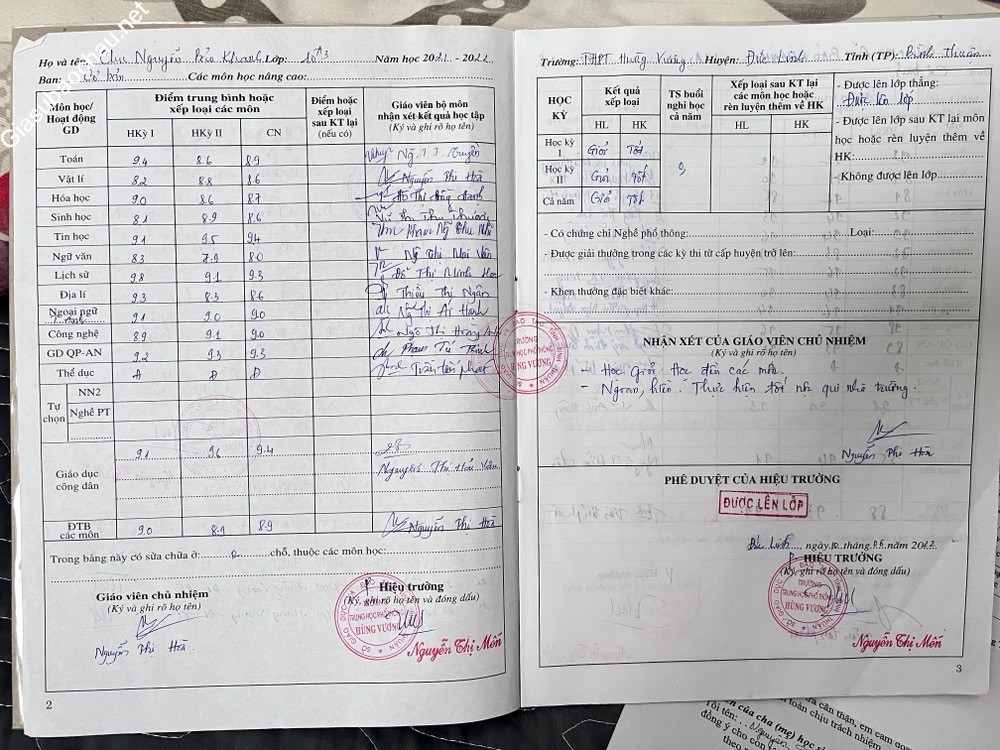 Giasubaochau.net
Họ và tên: Chu Nguyễn Bảo Khanh Lớp: 10A3 Năm học 2021 - 2022
Ban: Cơ bản Các môn học nâng cao:
Môn học/ Hoạt động GD
Điểm trung bình hoặc xếp loại các môn
HKỳ I HKỳ II CN
Điểm hoặc xếp loại sau KT lại (nếu có)
Giáo viên bộ môn nhận xét kết quả học tập (Ký và ghi rõ họ tên)
Toán 9.4 8.6 8.9
Vật lí 8.2 8.8 8.6 Nguyễn Phi Hoà
Hóa học 9.0 8.6 8.7
Sinh học 8.1 8.9 8.6
Tin học 9.1 9.5 9.4
Ngữ văn 8.3 7.9 8.0 Ng Thị Mai Vân
Lịch sử 9.8 9.1 9.3 Đỗ Thị Minh
Địa lí 9.3 8.3 8.6 Thiều Thị Ngân
Ngoại ngữ T.Anh 9.1 9.0 9.0 Ng Thị Ái Hạnh
Công nghệ 8.9 9.1 9.0 Ngô Thị Hoàng
GD QP-AN 9.2 9.3 9.3 Phạm Tú Trinh
Thể dục Đ Đ Đ Trần Tấn Phát
Tự chọn
NN2
Nghề PT
Giáo dục công dân 9.1 9.6 9.4
ĐTB các môn 9.0 8.9 8.9 Nguyễn Phi Hoà
Trong bảng này có sửa chữa ở: 0 chỗ, thuộc các môn học:
Giáo viên chủ nhiệm
(Ký và ghi rõ họ tên)
Nguyễn Phi Hoà
Hiệu trưởng
(Ký, ghi rõ họ tên và đóng dấu)
TRƯỜNG TRUNG HỌC PHỔ THÔNG HÙNG VƯƠNG
Nguyễn Thị Mến
2
Trường: THPT Hùng Vương Huyện: Đức Linh Tỉnh (TP): Bình Thuận
HỌC KỲ
Kết quả xếp loại
HL HK
TS buổi nghỉ học cả năm
Xếp loại sau KT lại các môn học hoặc rèn luyện thêm về HK
HL HK
Học kỳ I Giỏi Tốt
Học kỳ II Giỏi Tốt
Cả năm Giỏi Tốt
- Được lên lớp thẳng:
Được lên lớp
- Được lên lớp sau KT lại môn học hoặc rèn luyện thêm về HK:
- Không được lên lớp
- Có chứng chỉ Nghề phổ thông: Loại:
- Được giải thưởng trong các kỳ thi từ cấp huyện trở lên:
- Khen thưởng đặc biệt khác:
NHẬN XÉT CỦA GIÁO VIÊN CHỦ NHIỆM
(Ký và ghi rõ họ tên)
- Học Giỏi đều các môn.
- Ngoan, hiền. Thực hiện tốt nội qui nhà trường.
Nguyễn Phi Hoà
PHÊ DUYỆT CỦA HIỆU TRƯỞNG
ĐƯỢC LÊN LỚP
Đức Linh, ngày 10 tháng 06 năm 2022
HIỆU TRƯỞNG
(Ký, ghi rõ họ tên và đóng dấu)
TRƯỜNG TRUNG HỌC PHỔ THÔNG HÙNG VƯƠNG
Nguyễn Thị Mến
3